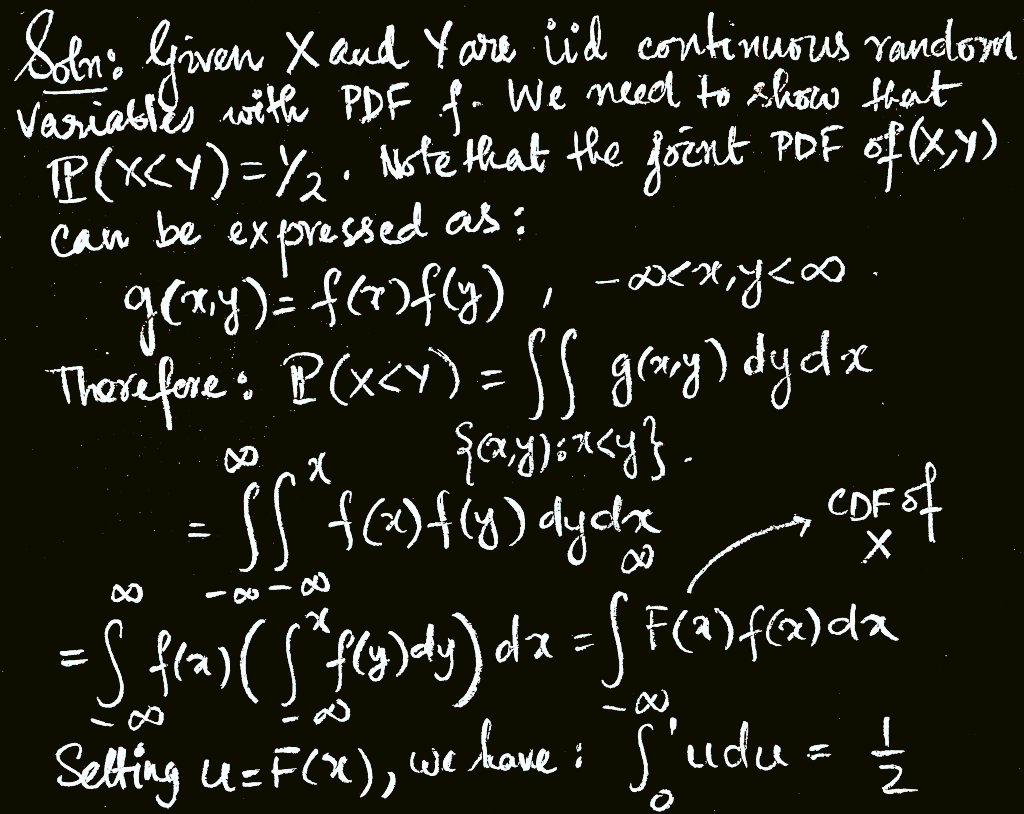 Soln: Given X and Y are iid continuous random
variables with PDF f. We need to show that
ℙ(X<Y)=1/2. Note that the joint PDF of (X,Y)
can be expressed as:
g(x,y)= f(x)f(y) , -∞<x,y<∞.
Therefore: ℙ(X<Y) = ∫∫_{{(x,y):x<y}} g(x,y) dydx
= ∫_{-∞}^{∞} ∫_{-∞}^{x} f(x)f(y) dydx
CDF of X
= ∫_{-∞}^{∞} f(x) ( ∫_{-∞}^{x} f(y)dy ) dx = ∫_{-∞}^{∞} F(x)f(x)dx
Setting u=F(x), we have: ∫_0^1 udu = 1/2